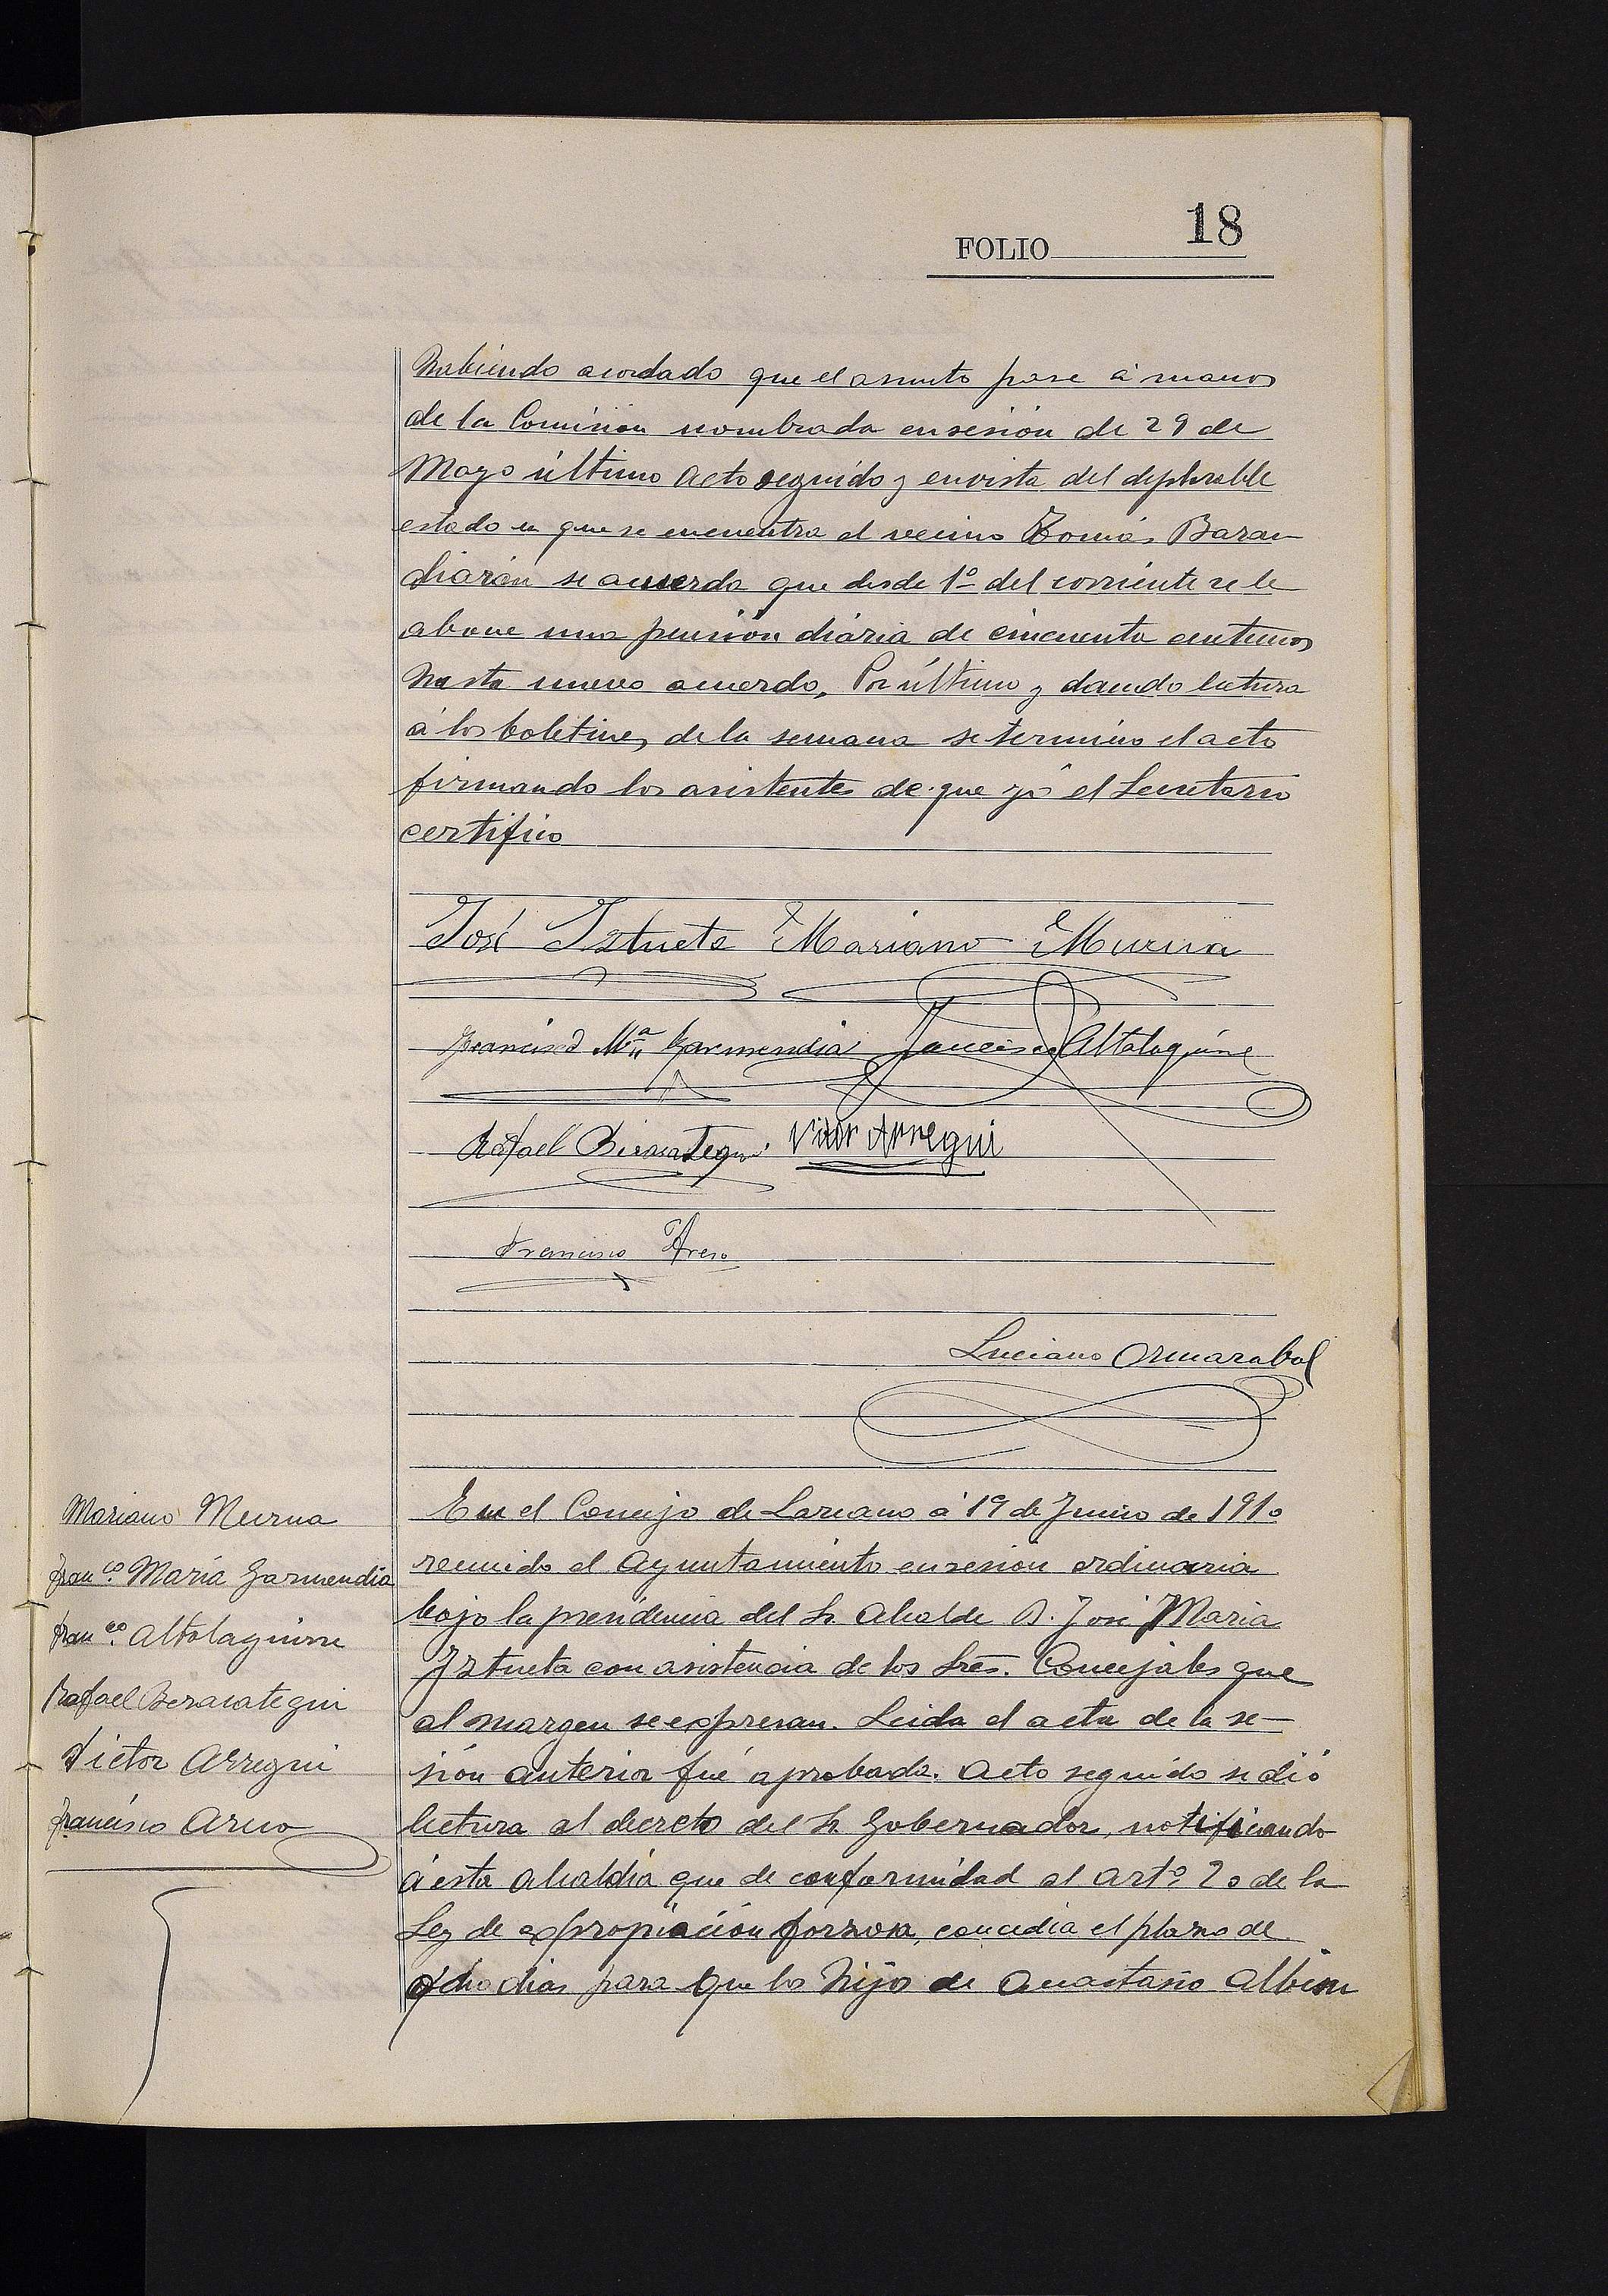 FOLIO 18
habiendo acordado que el asunto pase á manos
de la Comision nombrada en sesión de 29 de
Mayo último acto seguido y en vista del deplorable
estado en que se encuentra el vecino Tomás Baran
diarán se acuerda que desde 1º del corriente se le
abone una pensión diária de cincuenta centimos
hasta nuevo acuerdo. Por último y dando lectura
á los boletines de la semana se termino el acto
firmando los asistentes de que yó el Secretario
certifico
José Iztueta Mariano Murua
Francisco Mª Garmendia Francisco Altolaguirre
Rafael Berasategui Victor Arregui
Francisco Areso
Luciano Ormazabal
Mariano Murua
Franco. María Garmendia
Franco. Altolaguirre
Rafael Berasategui
Victor Arregui
Francisco Areso
En el Concejo de Lazcano á 19 de Junio de 1910
reunido el Ayuntamiento en sesión ordinaria
bajo la presidencia del Sr. Alcalde D. José Maria
Iztueta con asistencia de los Sres. Concejales que
al margen se expresan. Leida el acta de la se-
sión anterior fué aprobada. Acto seguido se dió
lectura al decreto del Sr. Gobernador, notificando
á esta Alcaldía que de conformidad al artº 20 de la
Ley de expropiación forzosa, concedia el plazo de
ocho dias para que los hijos de Anastasio Albisu